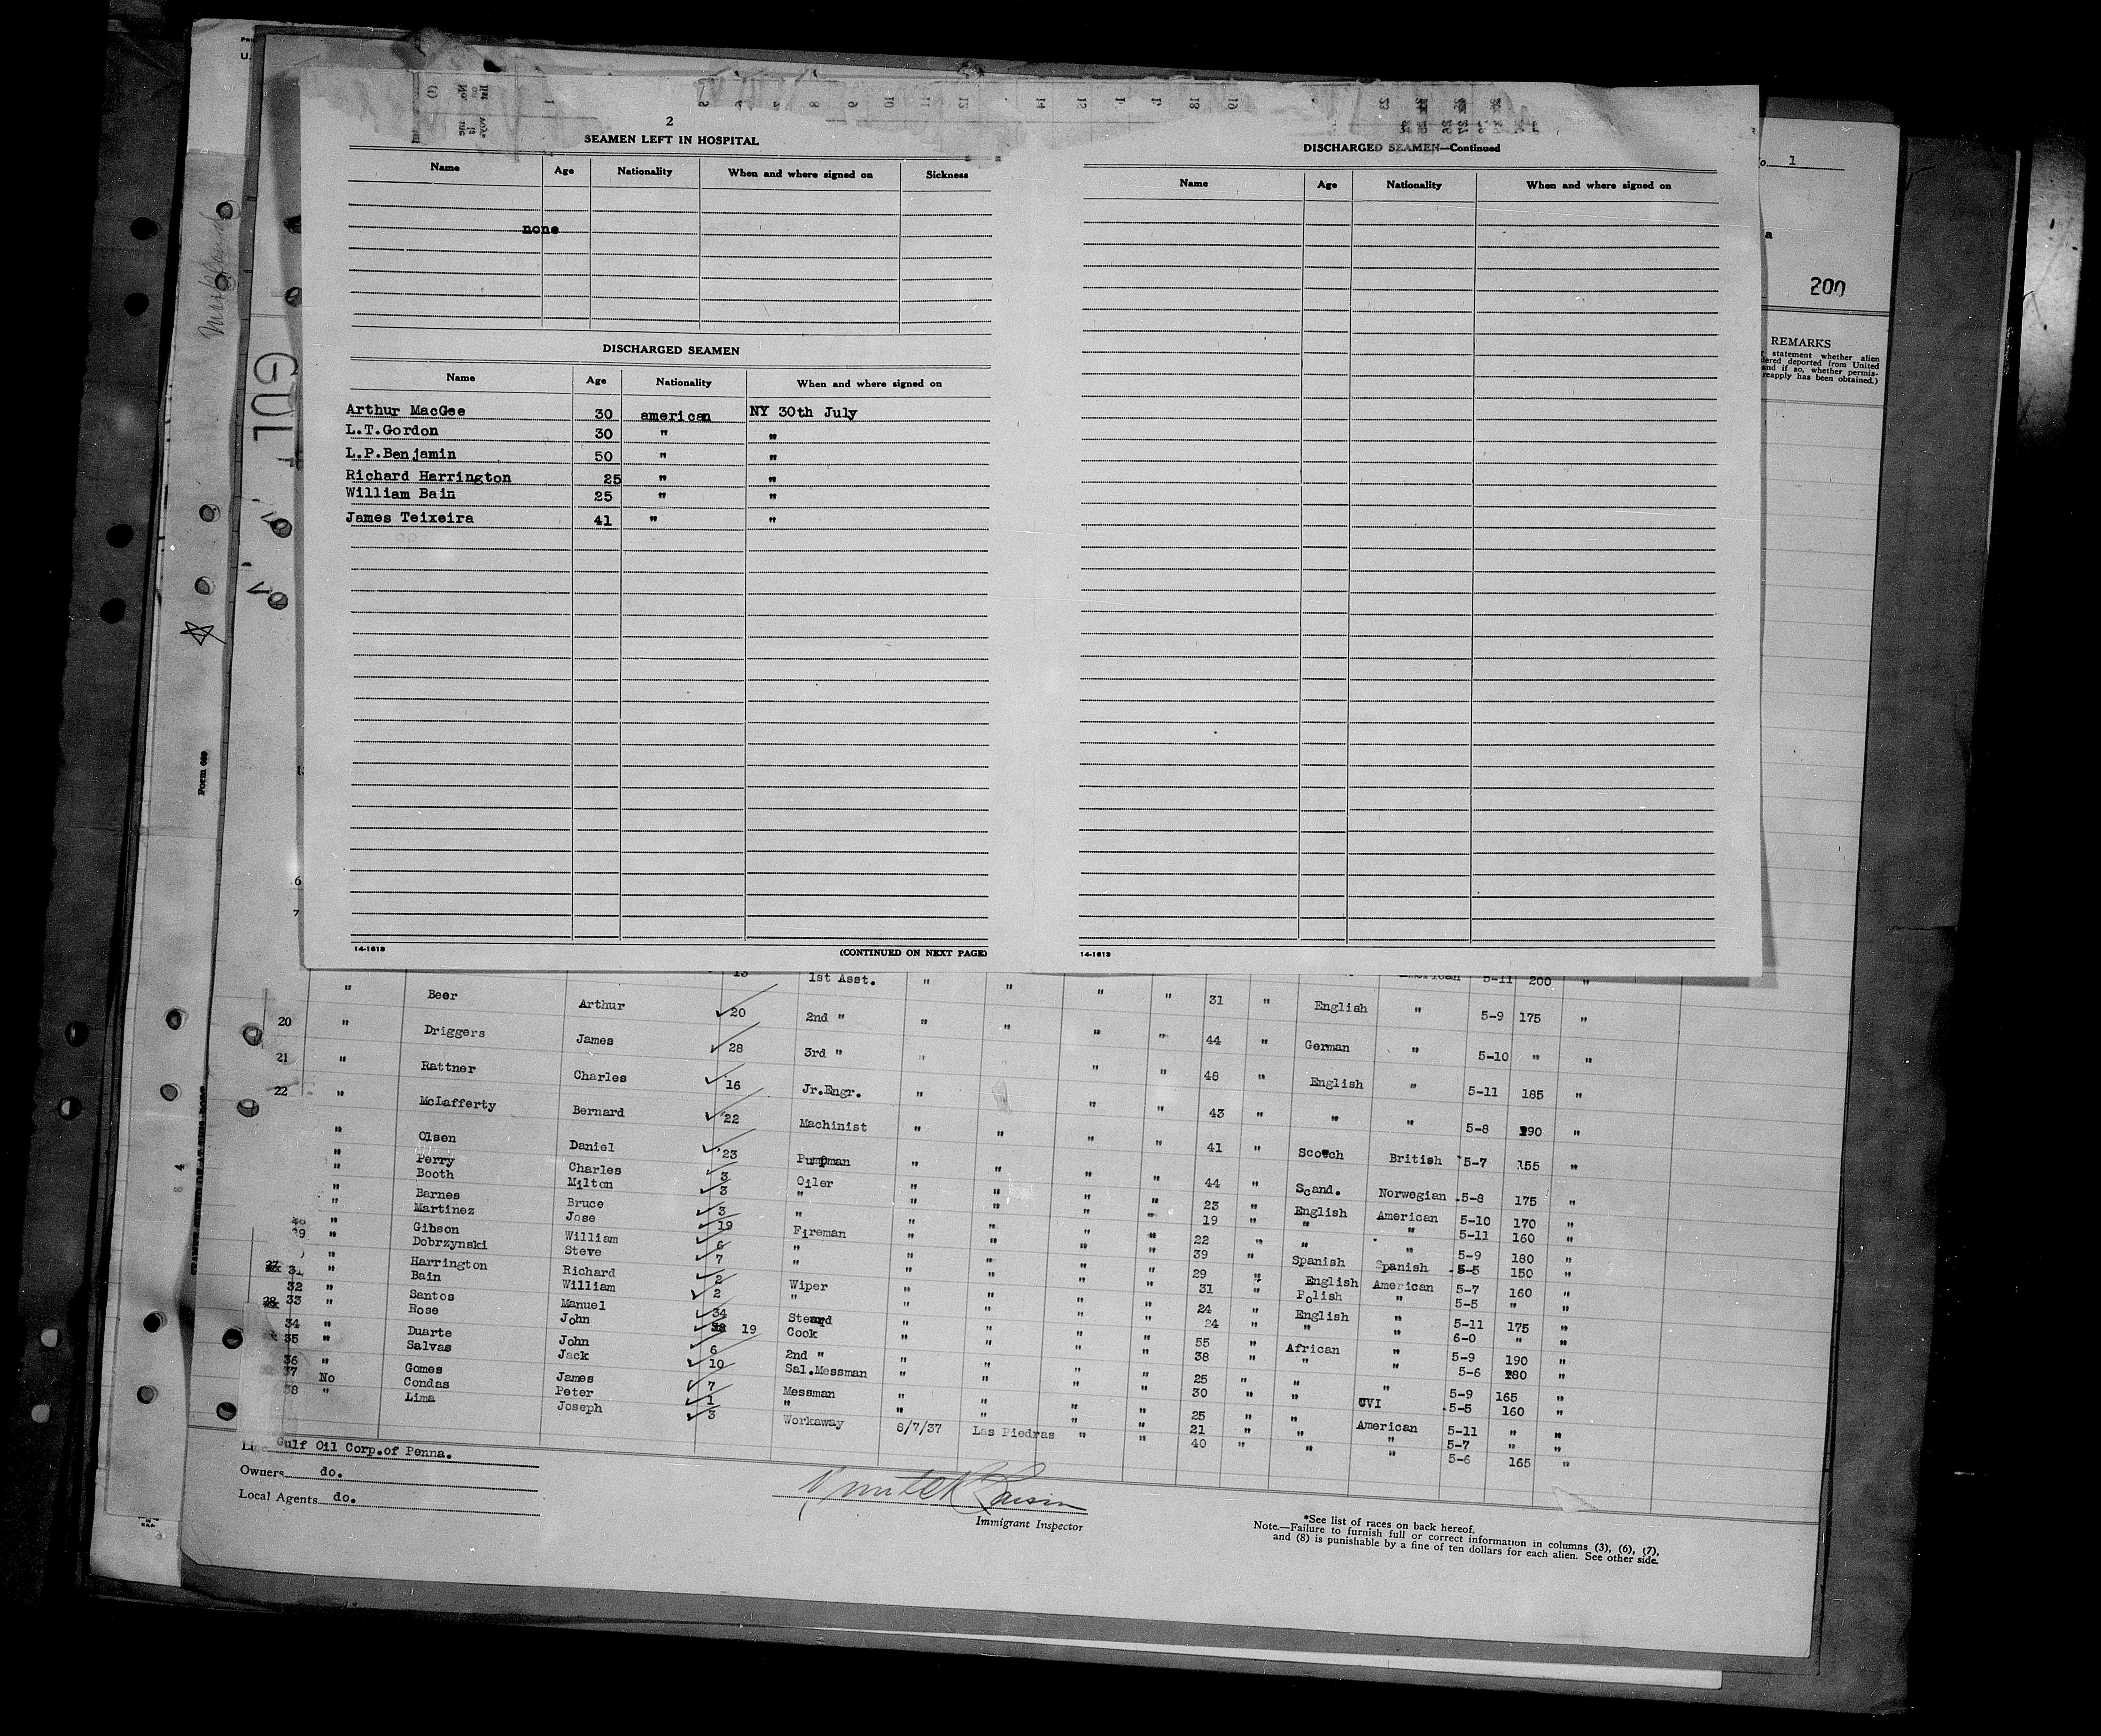 2
SEAMEN LEFT IN HOSPITAL
Name Age Nationality When and where signed on Sickness
none
DISCHARGED SEAMEN
Name Age Nationality When and where signed on
Arthur MacGee 30 american NY 30th July
L.T.Gordon 30 " "
L.P.Benjamin 50 " "
Richard Harrington 25 " "
William Bain 25 " "
James Teixeira 41 " "
14-1613 (CONTINUED ON NEXT PAGE)
DISCHARGED SEAMEN—Continued
Name Age Nationality When and where signed on
14-1613
1
200
REMARKS
statement whether alien
deported from United
and if so, whether permis-
reapply has been obtained.)
GULF
Form 689
1st Asst. " " " " American 5-11 200 "
" Beer Arthur 20 2nd " " " " " 31 " English " 5-9 175 "
20 " Driggers James 28 3rd " " " " " 44 " German " 5-10 " "
21 " Rattner Charles 16 Jr.Engr. " " " 48 " English " 5-11 185 "
22 " McLafferty Bernard 22 Machinist " " " " 43 " " " 5-8 190 "
" Olsen Daniel 23 Pumpman " " " " 41 " Scotch British 5-7 155 "
" Perry Charles 3 Oiler " " " " 44 " Scand. Norwegian 5-8 175 "
" Booth Milton 3 " " " " " 23 " English American 5-10 170 "
" Barnes Bruce 3 " " " " " 19 " " " 5-11 160 "
" Martinez Jose 19 Fireman " " " " 22 " " " 5-9 180 "
" Gibson William 6 " " " " " 39 " Spanish Spanish 5-5 150 "
29 " Dobrzynski Steve 7 " " " " " 29 " English American 5-7 160 "
" Harrington Richard 2 Wiper " " " " 31 " Polish " 5-5 " "
31 " Bain William 2 " " " " " 24 " English " 5-11 175 "
32 " Santos Manuel 34 Steward " " " " 24 " " " 6-0 " "
33 " Rose John 19 Cook " " " " 55 " African " 5-9 190 "
34 " Duarte John 6 2nd " " " " " 38 " " " 5-6 180 "
35 " Salvas Jack 10 Sal.Messman " " " " 25 " " " 5-9 165 "
36 " Gomes James 7 Messman " " " " 30 " " CVI 5-5 160 "
37 No Condas Peter 1 " " " " " 25 " " American 5-11 " "
38 " Lima Joseph 3 Workaway 8/7/37 Las Piedras " " 21 " " " 5-7 " "
40 " " " 5-6 165 "
Line Gulf Oil Corp.of Penna.
Owners do.
Local Agents do.
Immigrant Inspector
*See list of races on back hereof.
Note.—Failure to furnish full or correct information in columns (3), (6), (7),
and (8) is punishable by a fine of ten dollars for each alien. See other side.